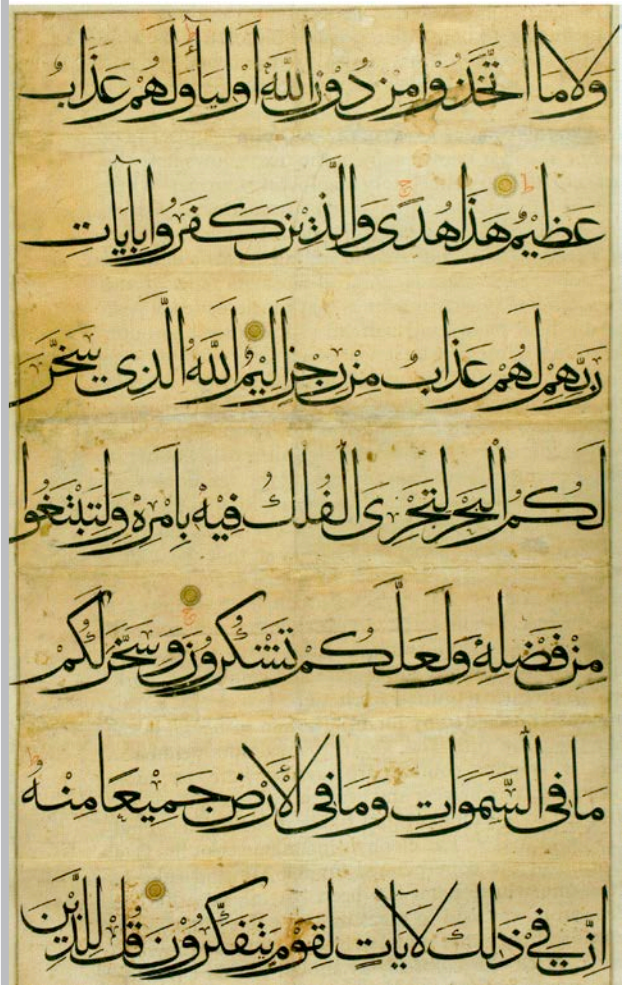 وَلَا مَا اتَّخَذُوا مِنْ دُونِ اللَّهِ أَوْلِيَآءَ وَلَهُمْ عَذَابٌ
عَظِيمٌ هَذَا هُدًى وَالَّذِينَ كَفَرُوا بِآيَاتِ
رَبِّهِمْ لَهُمْ عَذَابٌ مِنْ رِجْزٍ أَلِيمٌ اللَّهُ الَّذِي سَخَّرَ
لَكُمُ الْبَحْرَ لِتَجْرِيَ الْفُلْكُ فِيهِ بِأَمْرِهِ وَلِتَبْتَغُوا
مِنْ فَضْلِهِ وَلَعَلَّكُمْ تَشْكُرُونَ وَسَخَّرَ لَكُمْ
مَا فِي السَّمَوَاتِ وَمَا فِي الْأَرْضِ جَمِيعًا مِنْهُ
إِنَّ فِي ذَلِكَ لَآيَاتٍ لِقَوْمٍ يَتَفَكَّرُونَ قُلْ لِلَّذِينَ